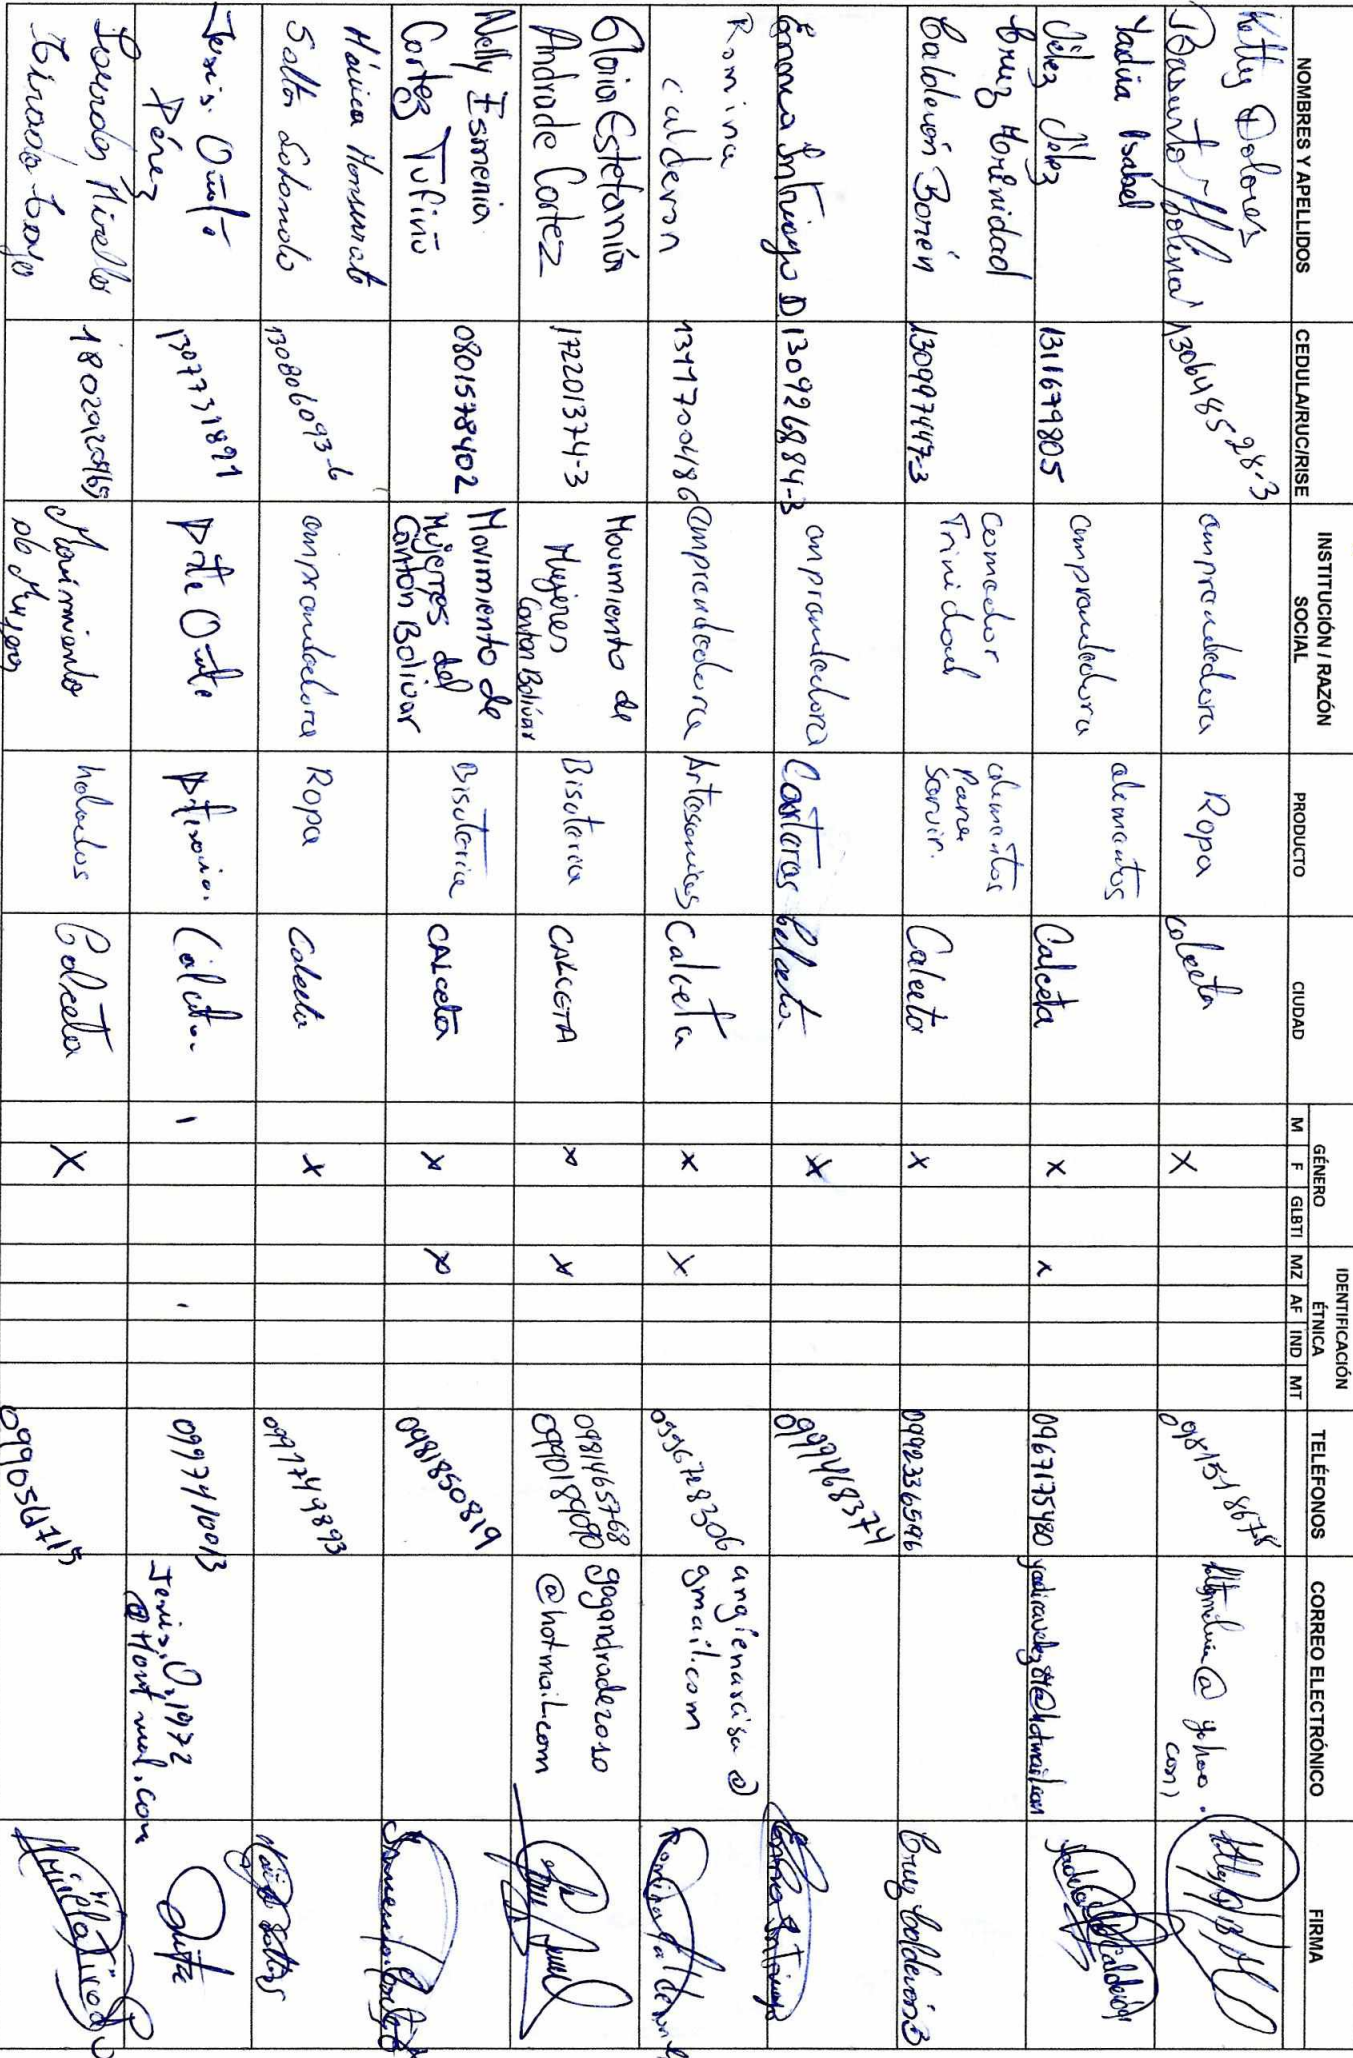 NOMBRES Y APELLIDOS CEDULA/RUC/RISE INSTITUCIÓN / RAZÓN SOCIAL PRODUCTO CIUDAD GÉNERO M F GLBTI IDENTIFICACIÓN ÉTNICA MZ AF IND MT TELÉFONOS CORREO ELECTRÓNICO FIRMA
Ketty Dolores
Basurto 130648528-3 emprendedora Ropa Calceta X 0981518678 @ yahoo.
com
Yadira Isabel
Vélez Vélez 1311679805 emprendedora alimentos Calceta x x 0967175480 yadiravelez81@hotmail.com
Cruz Trinidad
Calderón Borén 130997447-3 Comedor
Trinidad alimentos
para
servir. Calceta x 0992336596 Cruz Calderón B
Emma Intriago D 130926884-3 emprendedora Carteras Calceta x 0999468374 Emma Intriago
Romina
calderon 1317700486 emprendedora Artesanias Calceta x x 0996728306 angienarcisa@
gmail.com Romina Calderon
Gloria Estefanía
Andrade Cortez 172201374-3 Movimiento de
Mujeres
Canton Bolívar Bisuteria CALCETA x x 0981465768
0990189090 gogandrade2010
@hotmail.com
Nelly Esmeria
Cortez Tufiño 0801578402 Movimiento de
Mujeres del
Canton Bolivar Bisuteria CALceta x x 0981850819
Mónica Monserrate
Saltos 130806093-6 emprendedora Ropa Calceta x 0991749893
Jenis. Oñate
Pérez 1307731891 Calceta 0997410013 Jenis.O,1972
@Hotmail.com
Lourdes Mirella
Tirado 1802920465 Movimiento
de Mujeres helados Calceta X 0990561715